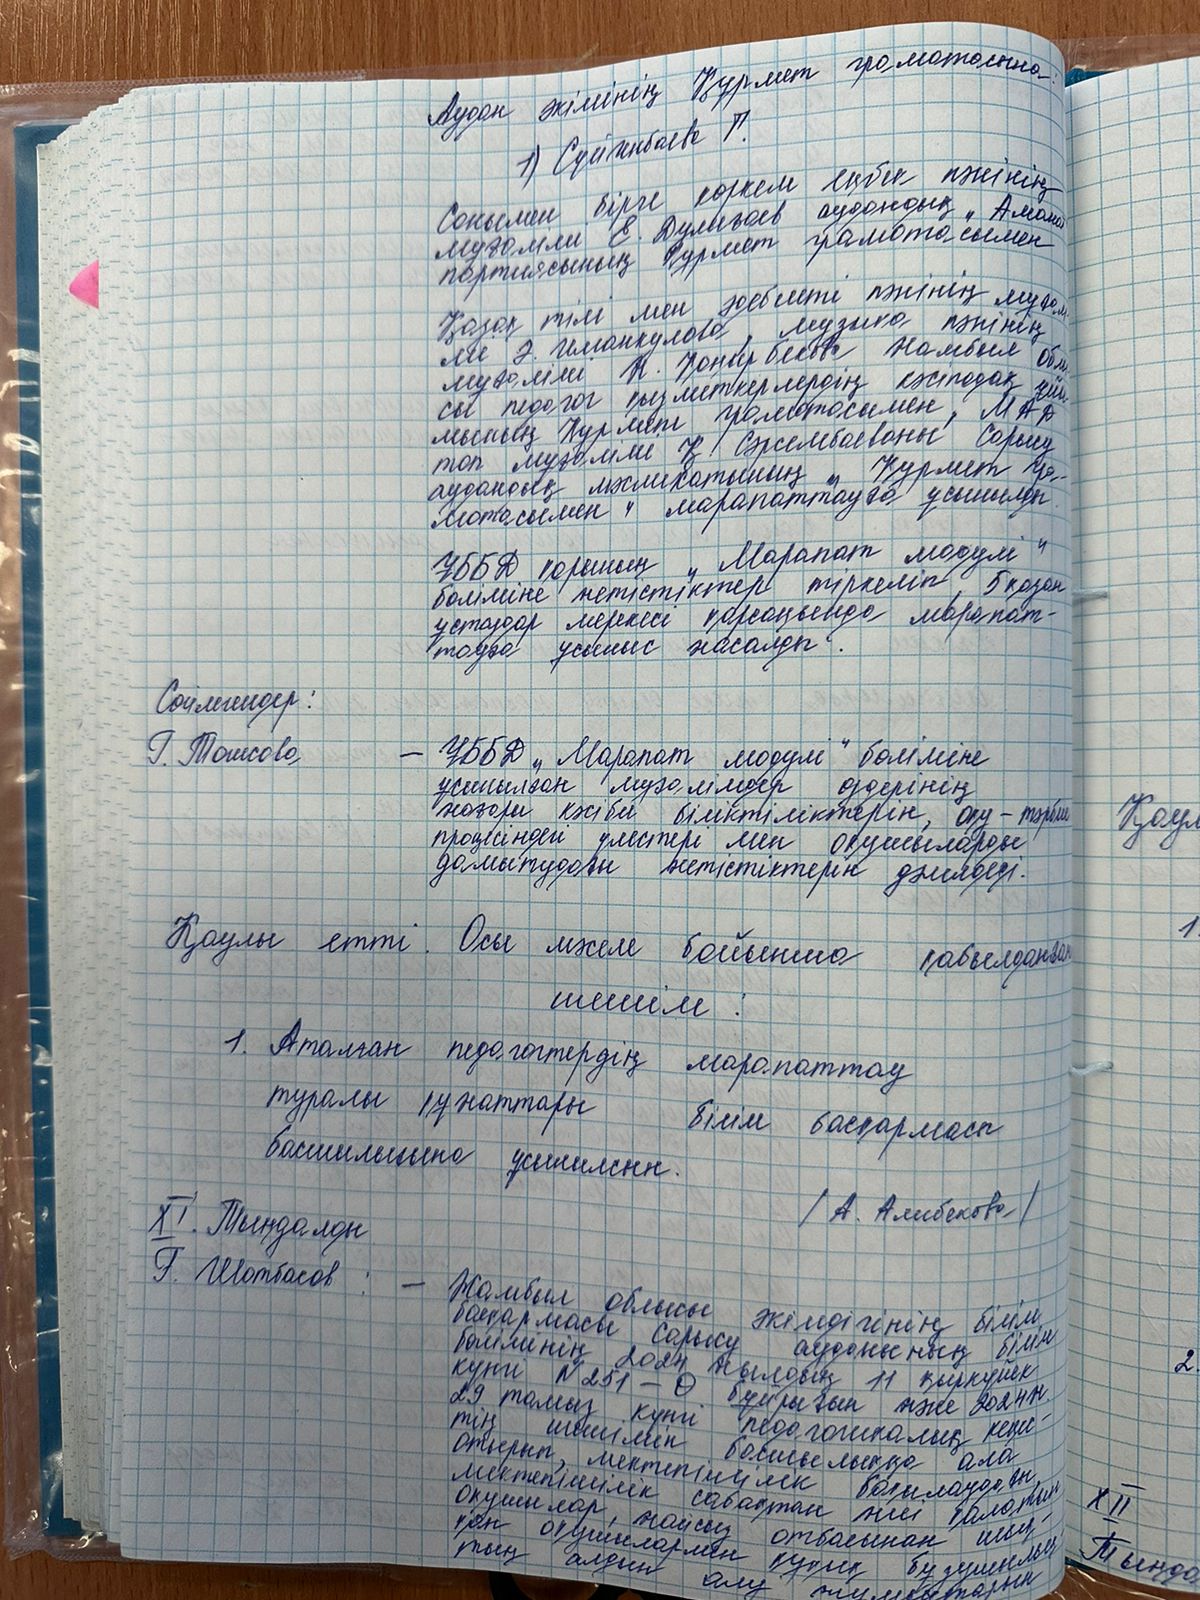 Аудан әкімінің Құрмет грамотасына:
1) Сүйінбаева Г.
Сонымен бірге көркем еңбек пәнінің
мұғалімі Е. Дулығаев аудандық „Аманат
партиясының Құрмет грамотасымен
Қазақ тілі мен әдебиеті пәнінің мұғалі
мі Э. Иманкулова, музыка пәнінің
мұғалімі К. Қоңырбекова Жамбыл облы
сы педагог қызметкерлердің кәсіподақ ұйы
мының Құрмет грамотасымен, МАД
топ мұғалімі Қ. Сәрсембаеваны Сарысу
аудандық мәслихатының „Құрмет гра-
мотасымен" марапаттауға ұсынылды.
ҰББД қорының „Марапат модулі"
бөліміне жетістіктер тіркеліп, 5 қазан
ұстаздар мерекесі қарсаңында марапат-
тауға ұсыныс жасалды.
Сөйлегендер:
Г. Ташова
– ҰББД „Марапат модулі" бөліміне
ұсынылған мұғалімдер өздерінің
жоғары кәсіби біліктіліктерін, оқу-тәрбие
процесіндегі үлестері мен оқушыларды
дамытудағы жетістіктерін дәлелдеді.
Қаулы етті. Осы мәселе бойынша қабылданған
шешім:
1. Аталған педагогтердің марапаттау
туралы құжаттары білім басқармасы
басшылығына ұсынылсын.
/ А. Алибекова /
XI. Тыңдалды
Г. Шотбасов: – Жамбыл облысы әкімдігінің білім
басқармасы Сарысу ауданының білім
бөлімінің 2024 жылдың 11 қыркүйек
күні N251-Ө бұйрығын және 2024ж
29 тамыз күні педагогикалық кеңес-
тің шешімін басшылыққа ала
отырып, мектепішілік бақылаудағы,
мектепішілік сабақтан жиі қалатын
оқушылар, жайсыз отбасынан шық-
қан оқушылармен құқық бұзушылық
тың алдын алу жұмыстарын
Қаул
1.
2.
XII
Тыңда